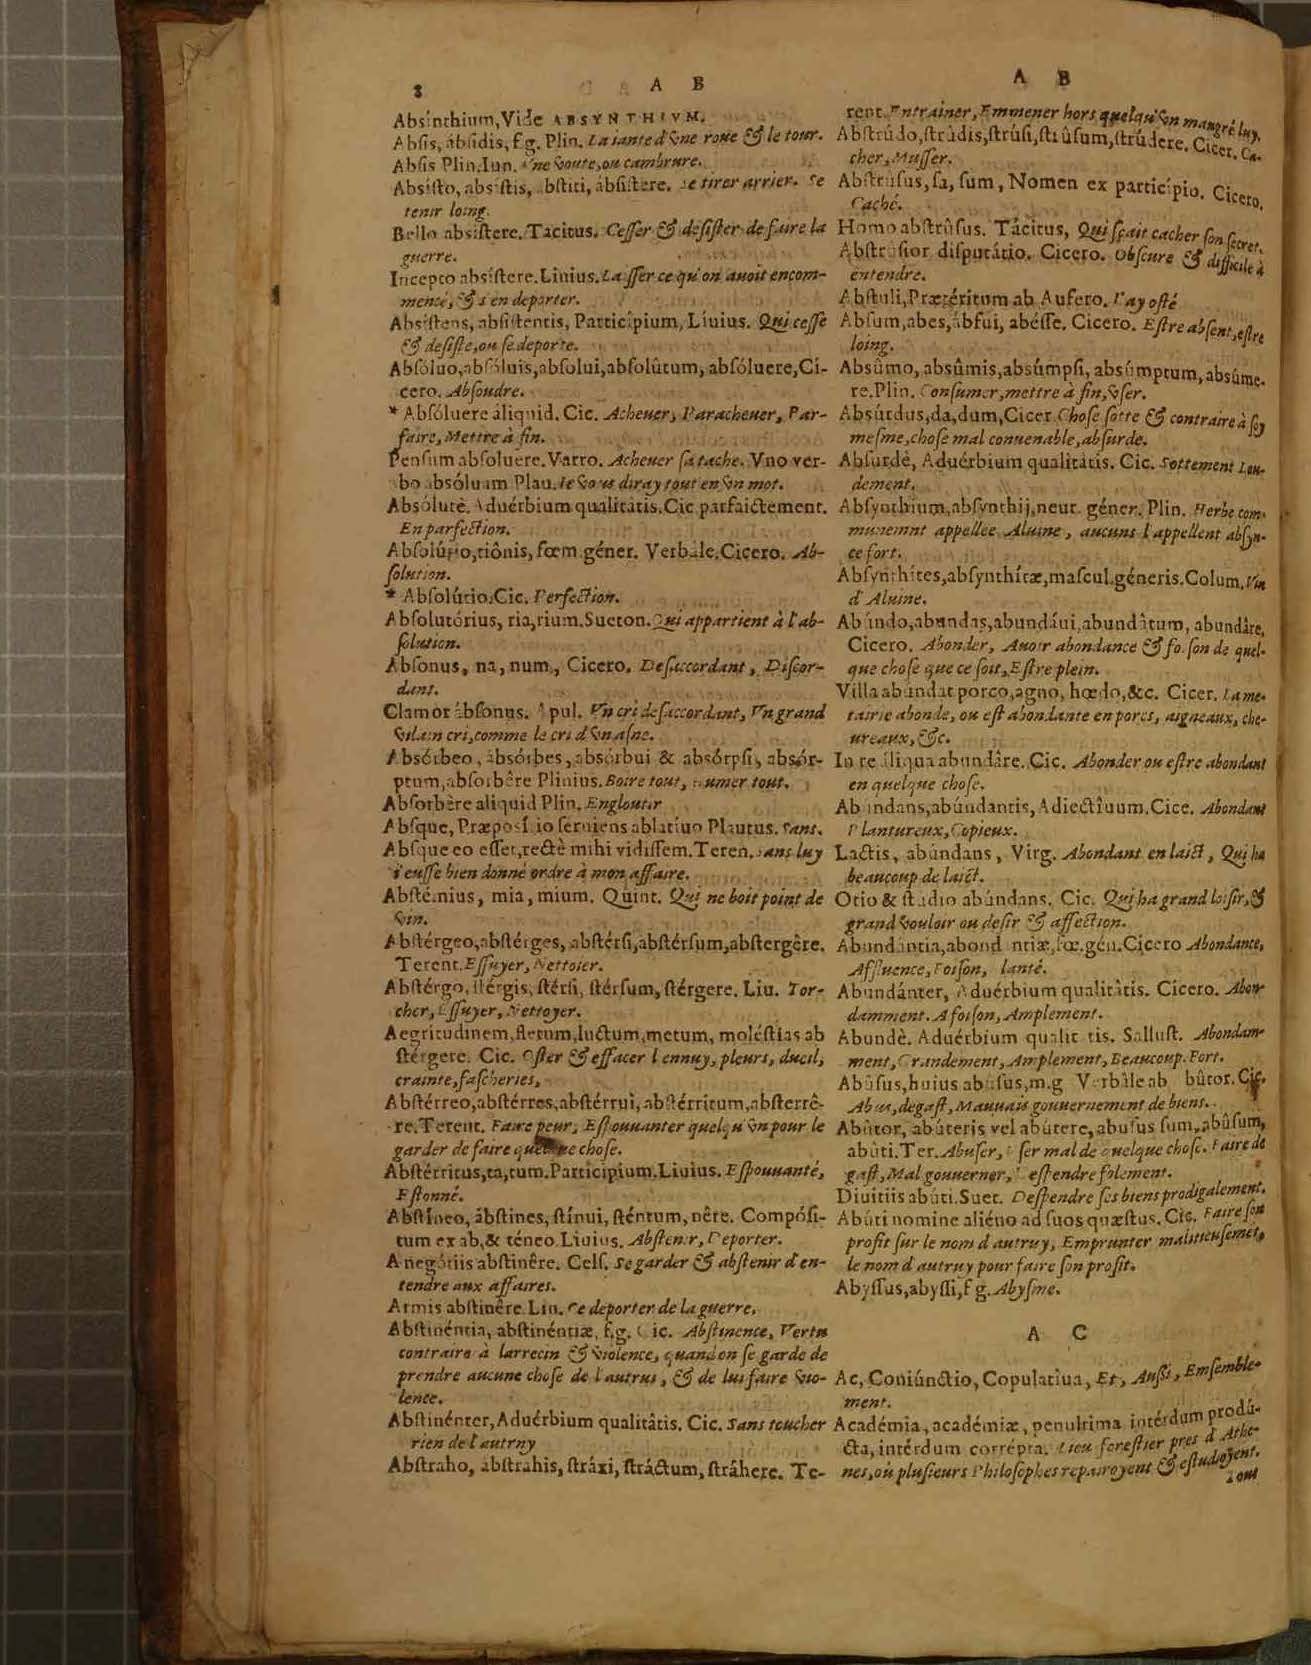 8 A B
Absinthium, Vide ABSYNTHIVM.
Absis, ábsidis, f.g. Plin. La iante d'vne roue & le tour.
Absis Plin. Iun. Vne voute, ou cambrure.
Absisto, absistis, abstiti, ábsistere. Se tirer arrier. Se
tenir loing.
Bello absistere. Tacitus. Cesser & desister de faire la
guerre.
Incepto absistere. Liuius. Laisser ce qu'on auoit encom-
mencé, & s'en deporter.
Absistens, absistentis, Participium, Liuius. Qui cesse
& desiste, ou se deporte.
Absóluo, absóluis, absolui, absolûtum, absóluere, Ci-
cero. Absoudre.
* Absóluere áliquid. Cic. Acheuer, Paracheuer, Par-
faire, Mettre à fin.
Pensum absoluere. Varro. Acheuer sa tache. Vno ver-
bo absóluam Plau. Ie vous diray tout en vn mot.
Absólutè. Aduérbium qualitâtis. Cic. parfaictement.
En parfection.
Absolútio, tiônis, fœm. géner. Verbale. Cicero. Ab-
solution.
* Absolútio. Cic. Perfection.
Absolutórius, ria, rium. Sueton. Qui appartient à l'ab-
solution.
Absonus, na, num, Cicero. Desaccordant, Discor-
dant.
Clamor ábsonus. Apul. Vn cri desaccordant, Vn grand
vilain cri, comme le cri d'vn asne.
Absórbeo, ábsórbes, absórbui & absórpsi, absór-
ptum, absorbêre Plinius. Boire tout, Humer tout.
Absorbère aliquid Plin. Engloutir
Absque, Præposítio seruiens ablatiuo Plautus. Sans.
Absque eo esset, rectè mihi vidissem. Teren. Sans luy
i'eusse bien donné ordre à mon affaire.
Abstémius, mia, mium. Quint. Qui ne boit point de
vin.
Abstérgeo, abstérges, abstérsi, abstérsum, abstergêre.
Terent. Essuyer, Nettoier.
Abstérgo, stérgis, stérsi, stérsum, stérgere. Liu. Tor-
cher, Essuyer, Nettoyer.
Aegritudinem, fletum, luctum, metum, moléstias ab
stérgere. Cic. Oster & effacer l'ennuy, pleurs, dueil,
crainte, fascheries,
Abstérreo, abstérres, abstérrui, abstérritum, absterrê-
re. Terent. Faire peur, Espouuanter quelqu'vn pour le
garder de faire quelque chose.
Abstérritus, ta, tum. Participium. Liuius. Espouuanté,
Estonné.
Abstíneo, ábstines, stínui, sténtum, nêre. Compósi-
tum ex ab, & téneo. Liuius. Abstenir, Deporter.
A negótiis abstinêre. Cels. Se garder & abstenir d'en-
tendre aux affaires.
Armis abstinêre. Liu. Se deporter de la guerre.
Abstinéntia, abstinéntiæ, f.g. Cic. Abstinence, Vertu
contraire à larrecin & violence, quand on se garde de
prendre aucune chose de l'autrui, & de lui faire vio-
lence.
Abstinénter, Aduérbium qualitâtis. Cic. Sans toucher
rien de l'autruy
Abstraho, ábstrahis, stráxi, stráctum, stráhere. Te-
A B
rent. Entrainer, Emmener hors quelqu'vn maugré luy.
Abstrúdo, strúdis, strúsi, strûsum, strúdere. Cicer. Ca-
cher, Musser.
Abstrúsus, sa, sum, Nomen ex partícipio. Cicero.
Caché.
Homo abstrûsus. Tácitus, Qui sçait cacher son secret.
Abstrusior disputátio. Cicero. Obscure & difficile à
entendre.
Abstuli, Prætéritum ab Aufero. I'ay osté
Absum, abes, ábfui, abésse. Cicero. Estre absent, estre
loing.
Absûmo, absûmis, absúmpsi, absúmptum, absûme-
re. Plin. Consumer, mettre à fin, vser.
Absúrdus, da, dum, Cicer. Chose sotte & contraire à soy
mesme, chose mal conuenable, absurde.
Absurdè, Aduérbium qualitâtis. Cic. Sottement Lou-
dement.
Absynthium, absynthij, neut. géner. Plin. Herbe com-
munemnt appellee Aluine, aucuns l'appellent absyn-
ce fort.
Absynthítes, absynthítæ, mascul. géneris. Colum. Vin
d'Aluine.
Abúndo, abundas, abundáui, abundâtum, abundáre,
Cicero. Abonder, Auoir abondance & foison de quel-
que chose que ce soit, Estre plein.
Villa abúndat porco, agno, hœdo, &c. Cicer. La me-
tairie abonde, ou est abondante en porcs, aigneaux, che-
ureaux, &c.
In re áliqua abundâre. Cic. Abonder ou estre abondant
en quelque chose.
Abúndans, abúndantis, Adiectîuum. Cice. Abondant
Plantureux, Copieux.
Lactis, abúndans, Virg. Abondant en laict, Qui ha
beaucoup de laict.
Otio & stúdio abúndans. Cic. Qui ha grand loisir, &
grand vouloir ou desir & affection.
Abundántia, abond ntiæ, fœ. gén. Cicero Abondance,
Affluence, Foison, lanté.
Abundánter, Aduérbium qualitâtis. Cicero. Abon-
damment. A foison, Amplement.
Abundè. Aduérbium qualit tis. Sallust. Abondam-
ment, Grandement, Amplement, Beaucoup. Fort.
Abúsus, huius abúsus, m.g Verbâle ab bûtor. Cic.
Abus, degast, Mauuais gouuernement de biens.
Abûtor, abúteris vel abútere, abusus sum, abûsum,
abúti. Ter. Abuser, Vser mal de quelque chose. Faire de
gast, Mal gouuerner, Despendre folement.
Diuitiis abúti. Suet. Despendre ses biens prodigalement.
Abúti nomine aliéno ad suos quæstus. Cic. Faire son
profit sur le nom d'autruy, Emprunter malitieusemēt,
le nom d'autruy pour faire son profit.
Abyssus, abyssi, f g. Abysme.
A C
Ac, Coniúnctio, Copulatiua, Et, Aussi, Emsemble-
ment.
Académia, académiæ, penultima intérdum prodú-
cta, intérdum corrépta. Lieu forestier pres d'Athe-
nes, où plusieurs Philosophes repairoyent & estudioyent.
Tout